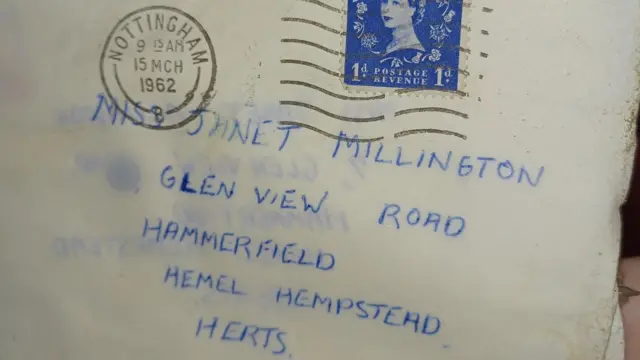 NOTTINGHAM
9 15 AM
15 MCH
1962
1d. POSTAGE REVENUE 1d.
MISS JANET MILLINGTON
GLEN VIEW ROAD
HAMMERFIELD
HEMEL HEMPSTEAD
HERTS.